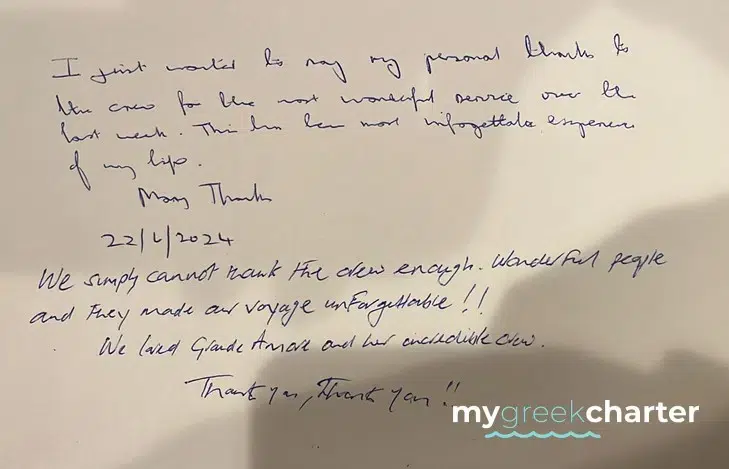 I just wanted to say my personal thanks to
the crew for the most wonderful service over the
last week. This has been most unforgettable experience
of my life.
Many Thanks
22/6/2024
We simply cannot thank the crew enough. Wonderful people
and they made our voyage unforgettable!!
We loved Grande Amore and her incredible crew.
Thank you, Thank you!!
mygreekcharter